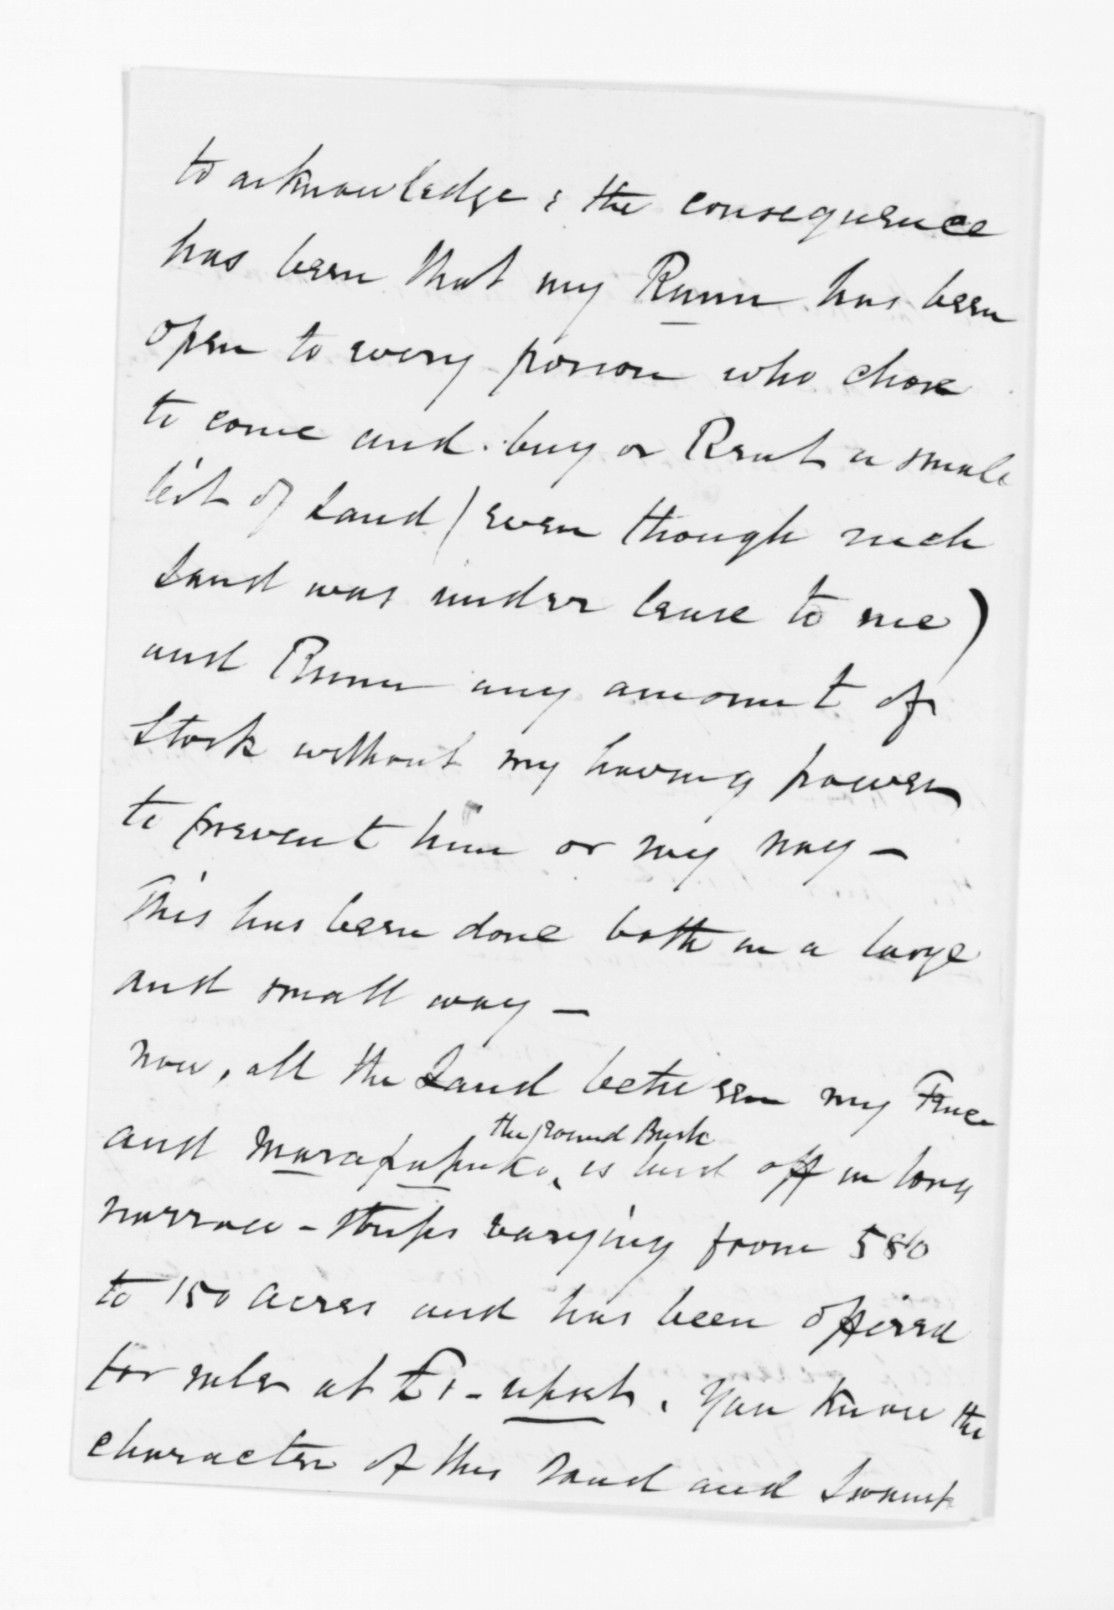 to acknowledge & the consequence
has been that my Runn has been
open to every person who chose
to come and buy or Rent a small
bit of Land (even though such
Land was under lease to me)
and Runn any amount of
Stock without my having power
to prevent him or my nay —
This has been done both in a large
and small way —
now, all the Land between my Fence
the round Bush
and Marapapuka, is laid off in long
narrow - strips varying from 580
to 150 acres and has been offered
for sale at £1 - upset. You know the
character of this Land and Swamp